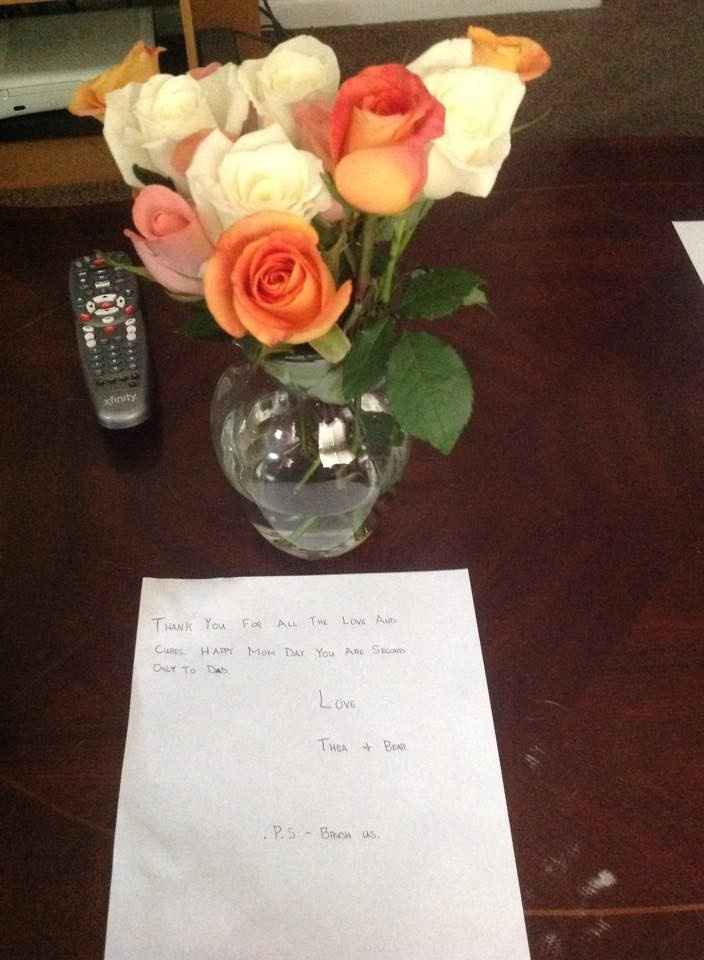 xfinity
THANK YOU FOR ALL THE LOVE AND
CUBES. HAPPY MOM DAY YOU ARE SECOND
ONLY TO DAD.
LOVE
THEA + BEAR
.P.S - BRUSH US.